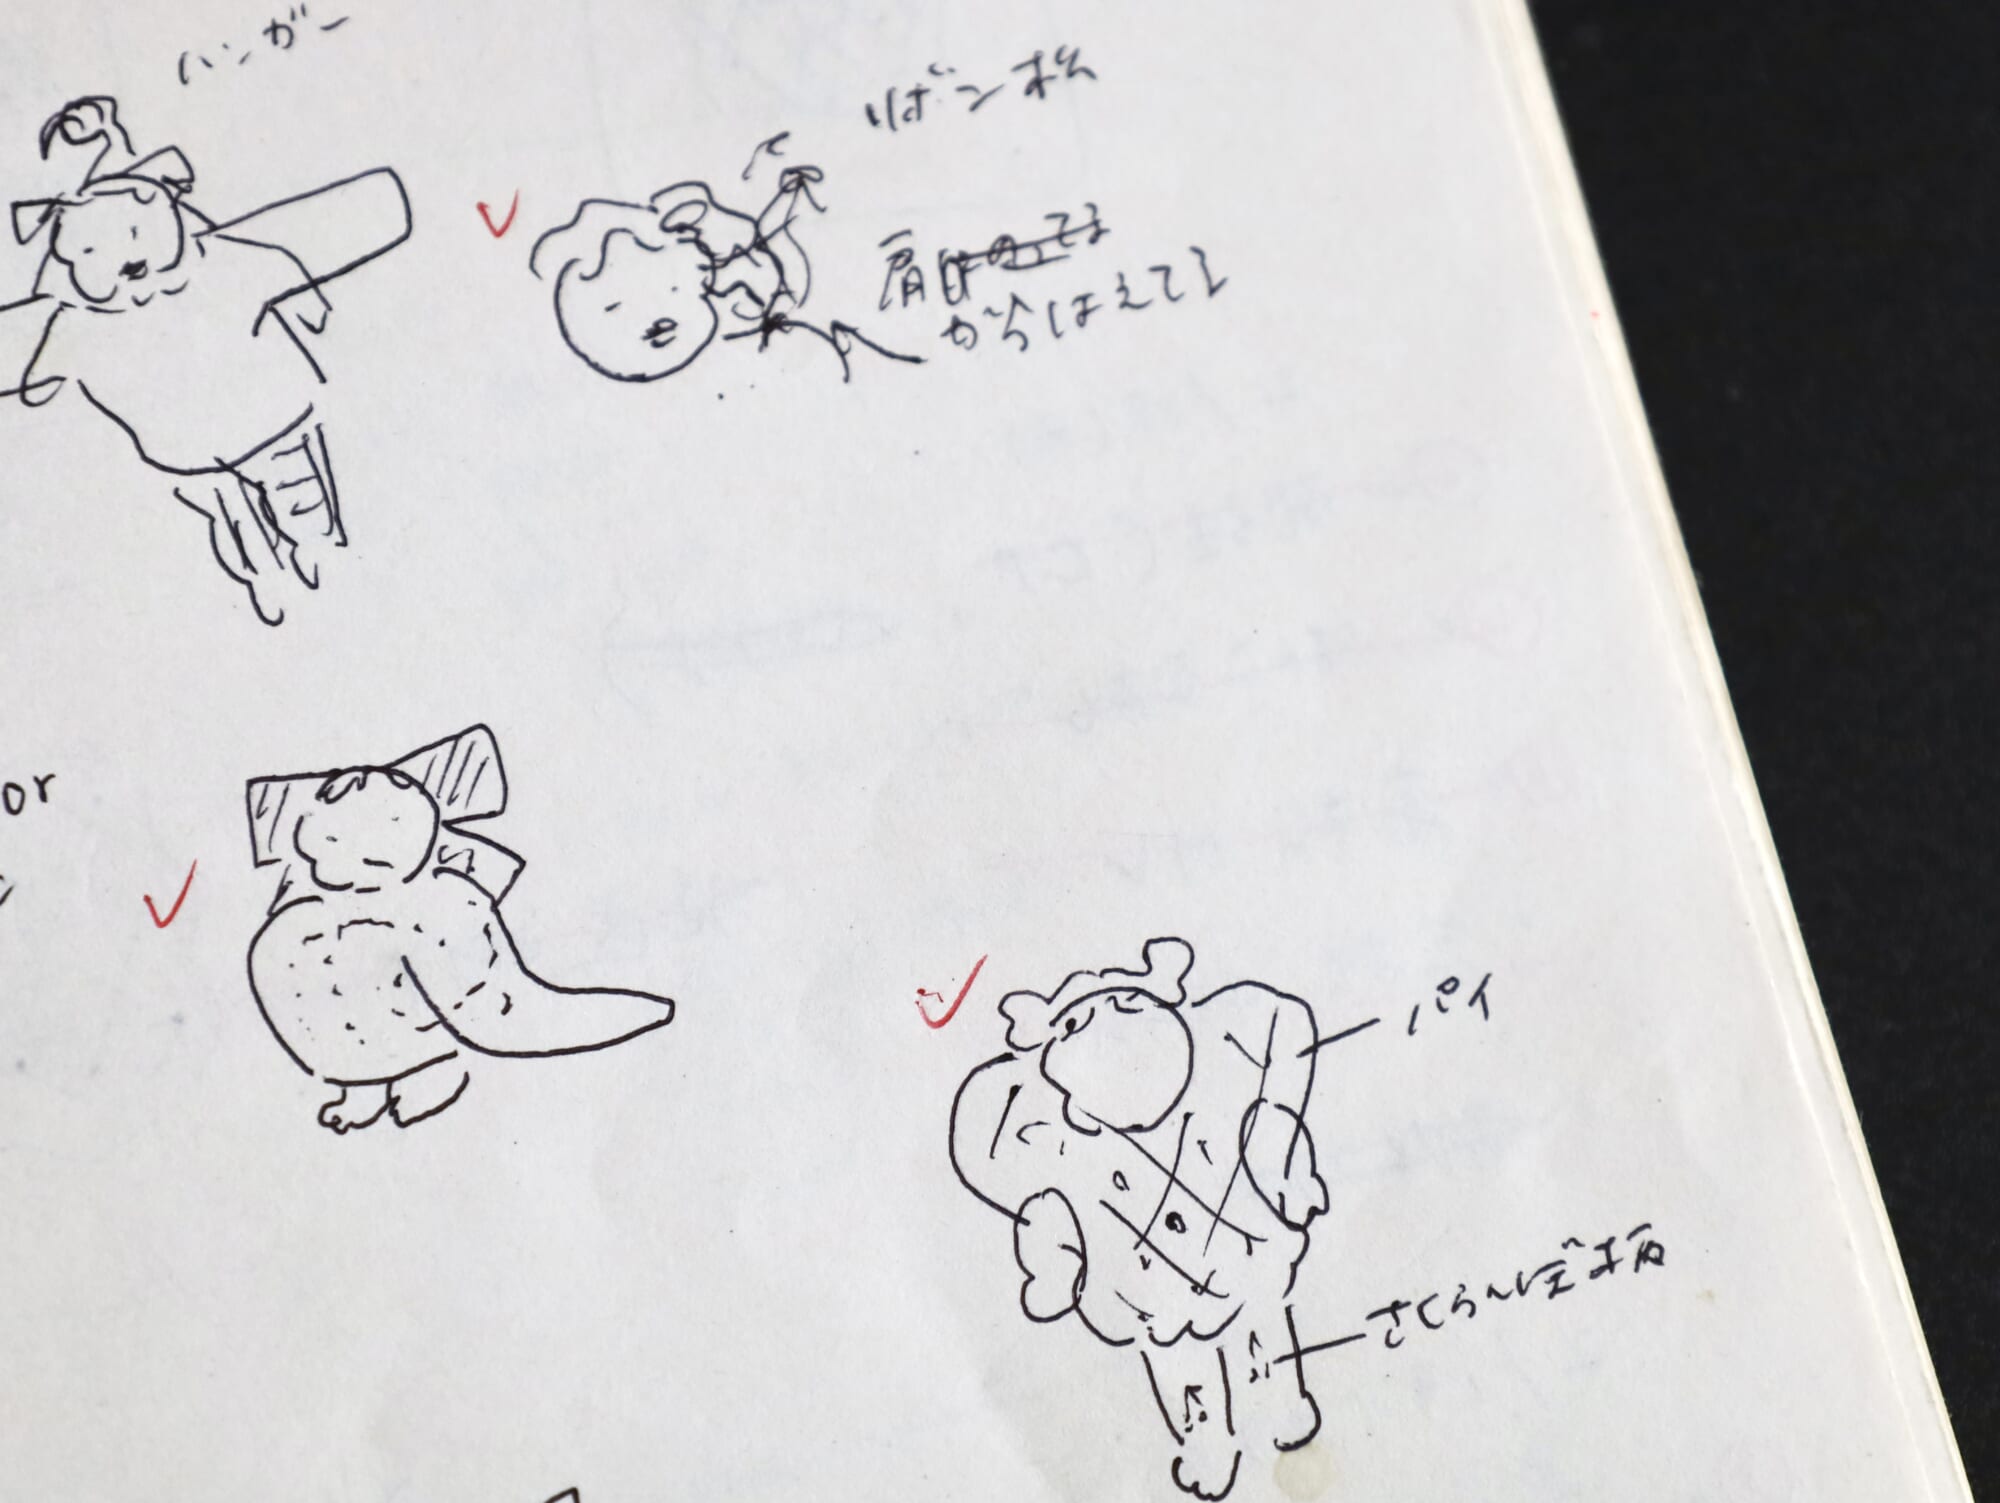 ハンガー
リボン松
肩
からはえてる
or
パイ
さくらんぼ柄